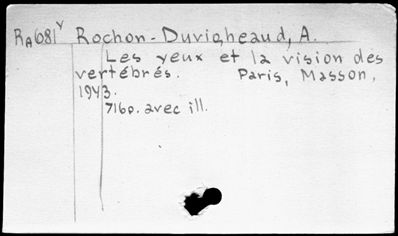 RA681Y Rochon-Duvigneaud, A.
Les yeux et la vision des
vertébrés. Paris, Masson,
1943.
716p. avec ill.